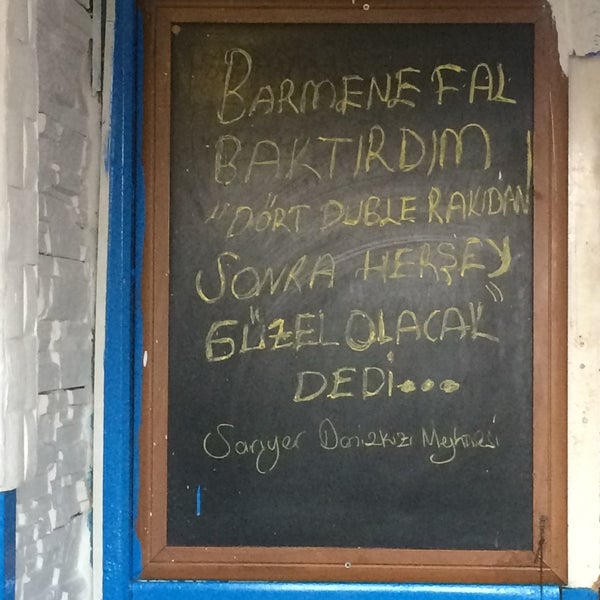 BARMENE FAL
BAKTIRDIM
"DÖRT DUBLE RAKIDAN
SONRA HERŞEY
GÜZEL OLACAK"
DEDİ...
Sarıyer Denizkızı Meyhanesi